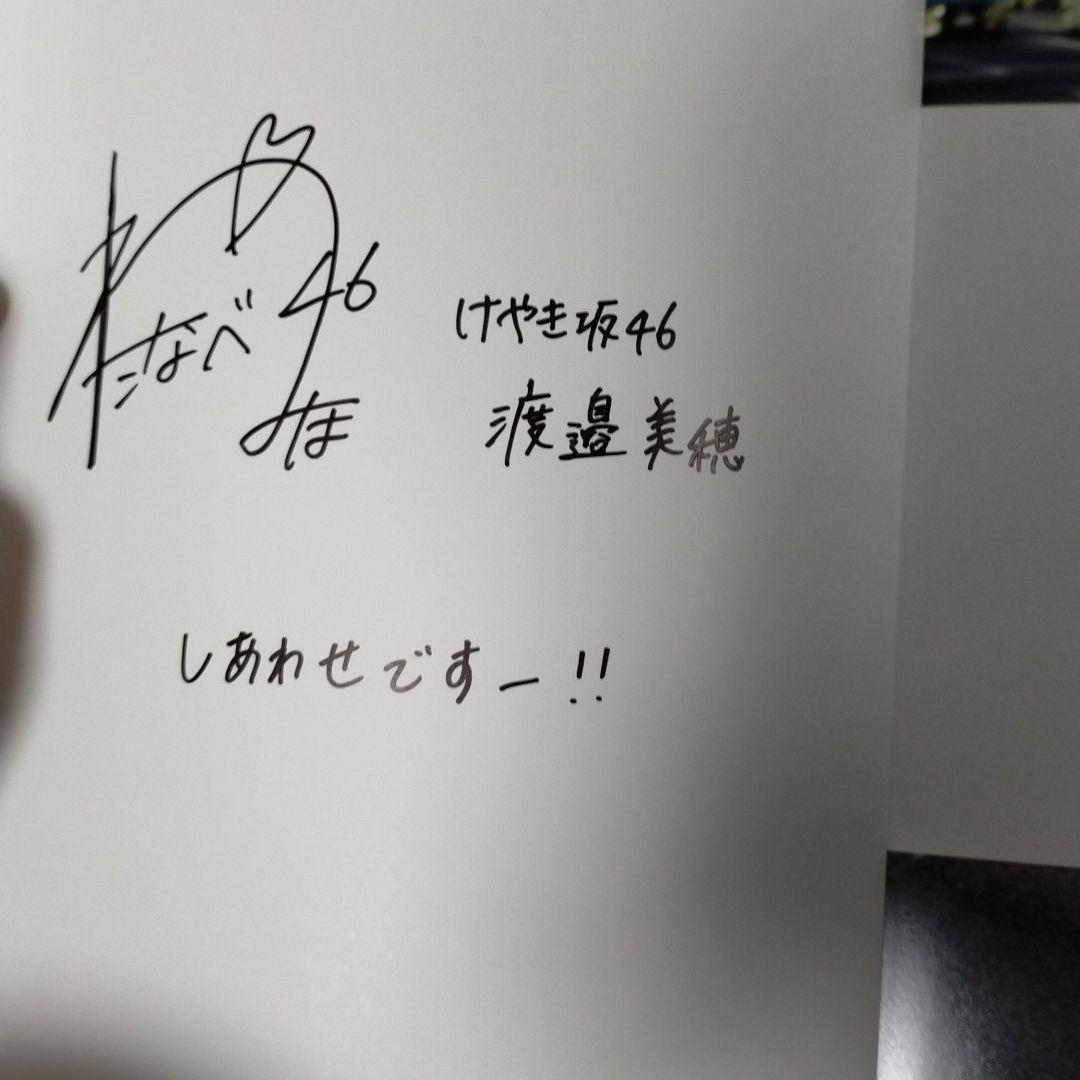 わたなべ
46
みほ
けやき坂46
渡邉美穂
しあわせですー!!